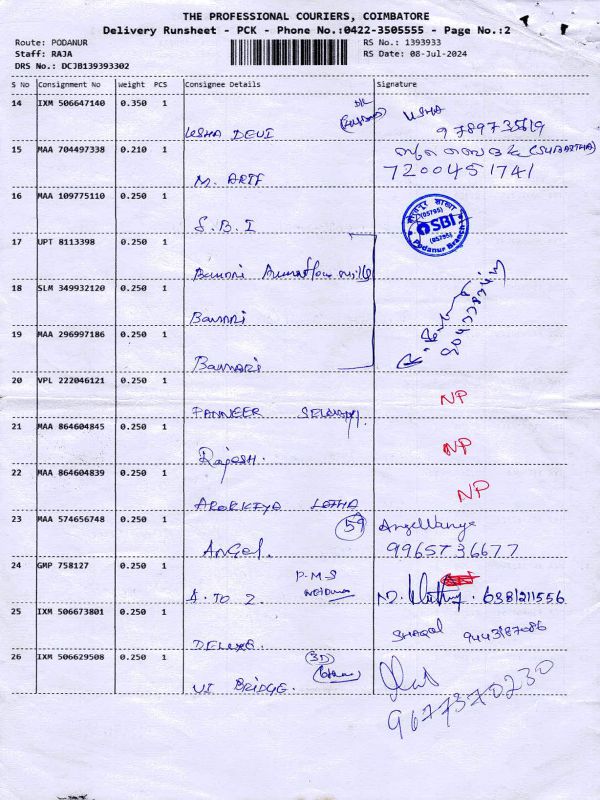 THE PROFESSIONAL COURIERS, COIMBATORE
Delivery Runsheet - PCK - Phone No.:0422-3505555 - Page No.:2
Route: PODANUR
Staff: RAJA
DRS No.: DCJB139393302
RS No.: 1393933
RS Date: 08-Jul-2024
S No Consignment No Weight PCS Consignee Details Signature
14 IXM 506647140 0.350 1
USHA DEVI USHA
9789735619
15 MAA 704497338 0.210 1
M. ARIF 7200451741
16 MAA 109775110 0.250 1
S.B.I
SBI
(05795)
Podanur Branch
17 UPT 8113398 0.250 1
Bannari
18 SLM 349932120 0.250 1
Bannari
19 MAA 296997186 0.250 1
Bannari
20 VPL 222046121 0.250 1
PANNEER SELVAM NP
21 MAA 864604845 0.250 1
Rajesh. NP
22 MAA 864604839 0.250 1
NP
23 MAA 574656748 0.250 1
59
Angel. 9965736677
24 GMP 758127 0.250 1
P.M.S
A. TO Z. 6381211556
25 IXM 506673801 0.250 1
DELUXE.
26 IXM 506629508 0.250 1
3D
VI BRIDGE. 9677370230